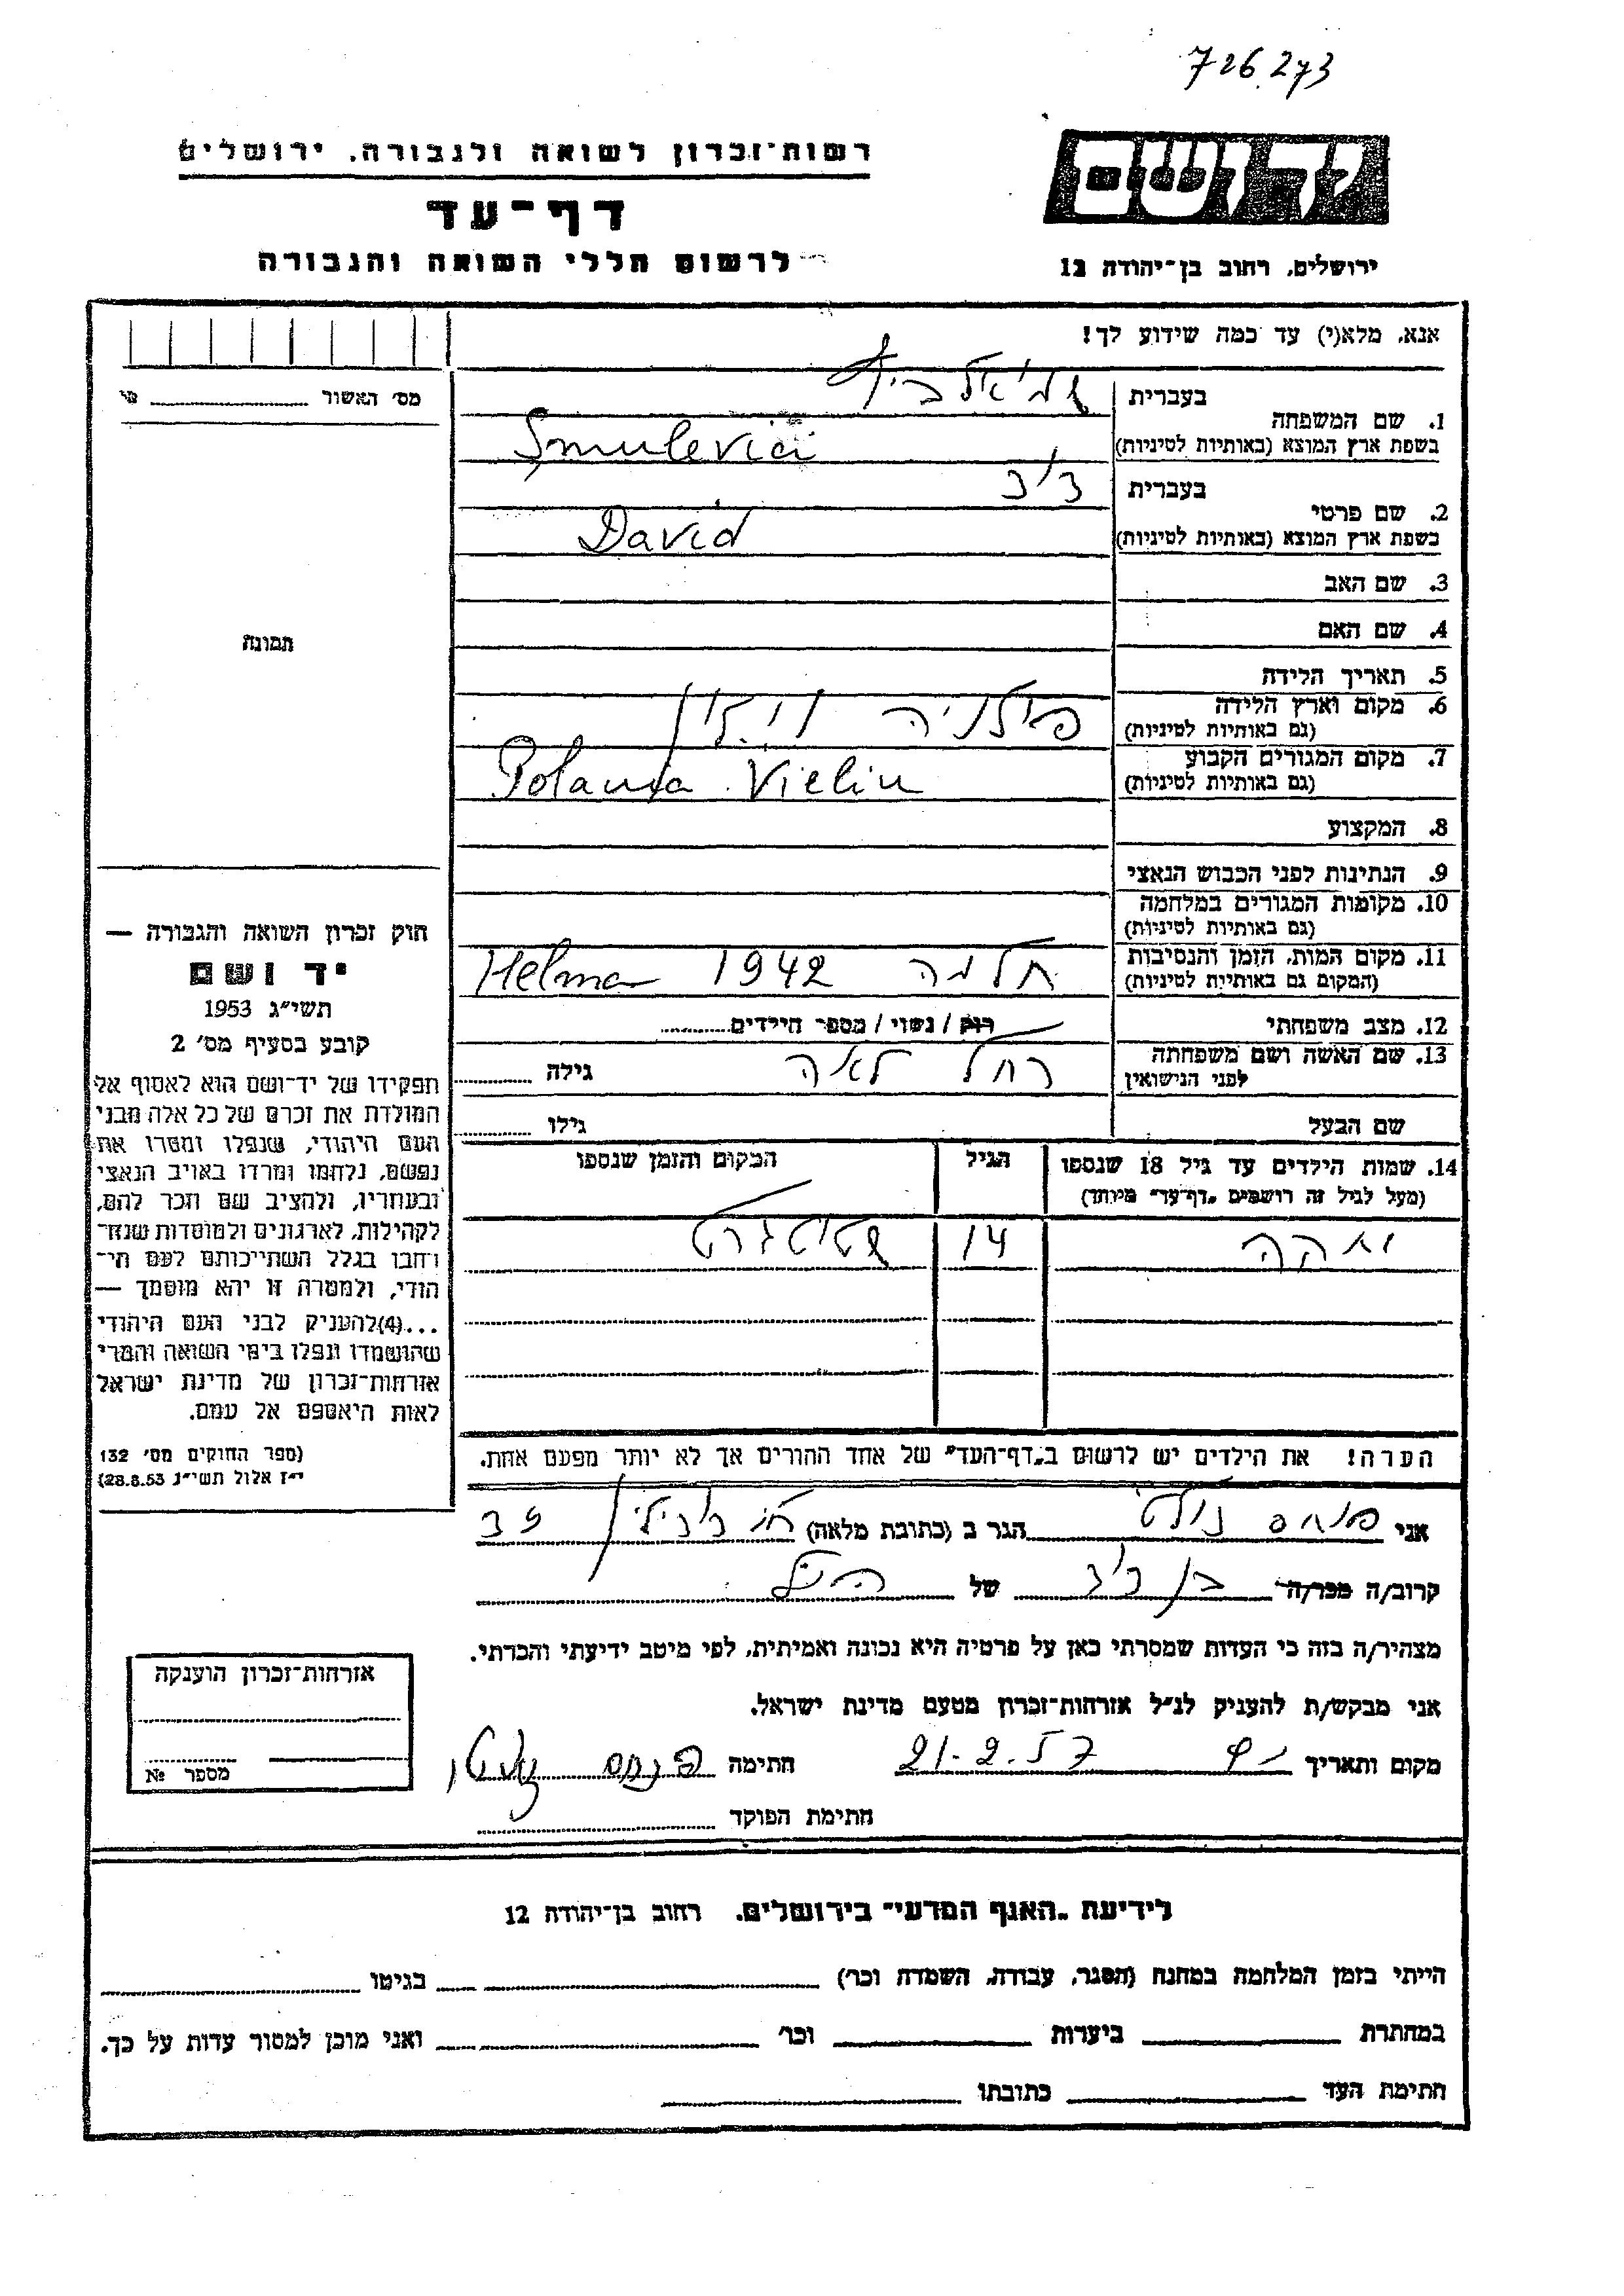 726.273
יד ושם
רשות־זכרון לשואה ולגבורה, ירושלים
דף־עד
לרשום חללי השואה והגבורה
ירושלים, רחוב בן־יהודה 12
אנא, מלא(י) עד כמה שידוע לך!
מס׳ האשור
1. שם המשפחה
בעברית
בשפת ארץ המוצא (באותיות לטיניות)
Șmulevici
2. שם פרטי
בעברית דוד
בשפת ארץ המוצא (באותיות לטיניות) David
3. שם האב
4. שם האם
5. תאריך הלידה
6. מקום וארץ הלידה
(גם באותיות לטיניות)
פולניה וילין
7. מקום המגורים הקבוע
(גם באותיות לטיניות)
Polania Vielin
8. המקצוע
9. הנתינות לפני הכבוש הנאצי
10. מקומות המגורים במלחמה
(גם באותיות לטיניות)
11. מקום המות, הזמן והנסיבות
(המקום גם באותיות לטיניות)
חלמה 1942 Helma
12. מצב משפחתי רווק / נשוי / מספר הילדים
13. שם האשה ושם משפחתה
לפני הנישואין
רחל לאה גילה
שם הבעל גילו
14. שמות הילדים עד גיל 18 שנספו
(מעל לגיל זה רושמים „דף־עד״ מיוחד)
הגיל
המקום והזמן שנספו
14
הערה! את הילדים יש לרשום ב„דף־העד״ של אחד ההורים אך לא יותר מפעם אחת.
תמונה
חוק זכרון השואה והגבורה —
יד ושם
תשי״ג 1953
קובע בסעיף מס׳ 2
תפקידו של יד־ושם הוא לאסוף אל
המולדת את זכרם של כל אלה מבני
העם היהודי, שנפלו ומסרו את
נפשם, נלחמו ומרדו באויב הנאצי
ובעוזריו, ולהציב שם וזכר להם,
לקהילות, לארגונים ולמוסדות שנח־
רבו בגלל השתייכותם לעם הי־
הודי, ולמטרה זו יהא מוסמך —
...(4)להעניק לבני העם היהודי
שהושמדו ונפלו בימי השואה והמרי
אזרחות־זכרון של מדינת ישראל
לאות היאספם אל עמם.
(ספר החוקים מס׳ 132
י״ז אלול תשי״ג 28.8.53)
אני פנחס הגר ב (כתובת מלאה)
קרוב/ה מכר/ה בן דוד של
מצהיר/ה בזה כי העדות שמסרתי כאן על פרטיה היא נכונה ואמיתית, לפי מיטב ידיעתי והכרתי.
אני מבקש/ת להעניק לנ״ל אזרחות־זכרון מטעם מדינת ישראל.
מקום ותאריך 21-2.57 חתימה פנחס
חתימת הפוקד
אזרחות־זכרון הוענקה
מספר №
לידיעת „האגף המדעי״ בירושלים, רחוב בן־יהודה 12
הייתי בזמן המלחמה במחנה (הסגר, עבודה, השמדה וכו׳) בגיטו
במחתרת ביערות וכו׳ ואני מוכן למסור עדות על כך.
חתימת העד כתובתו